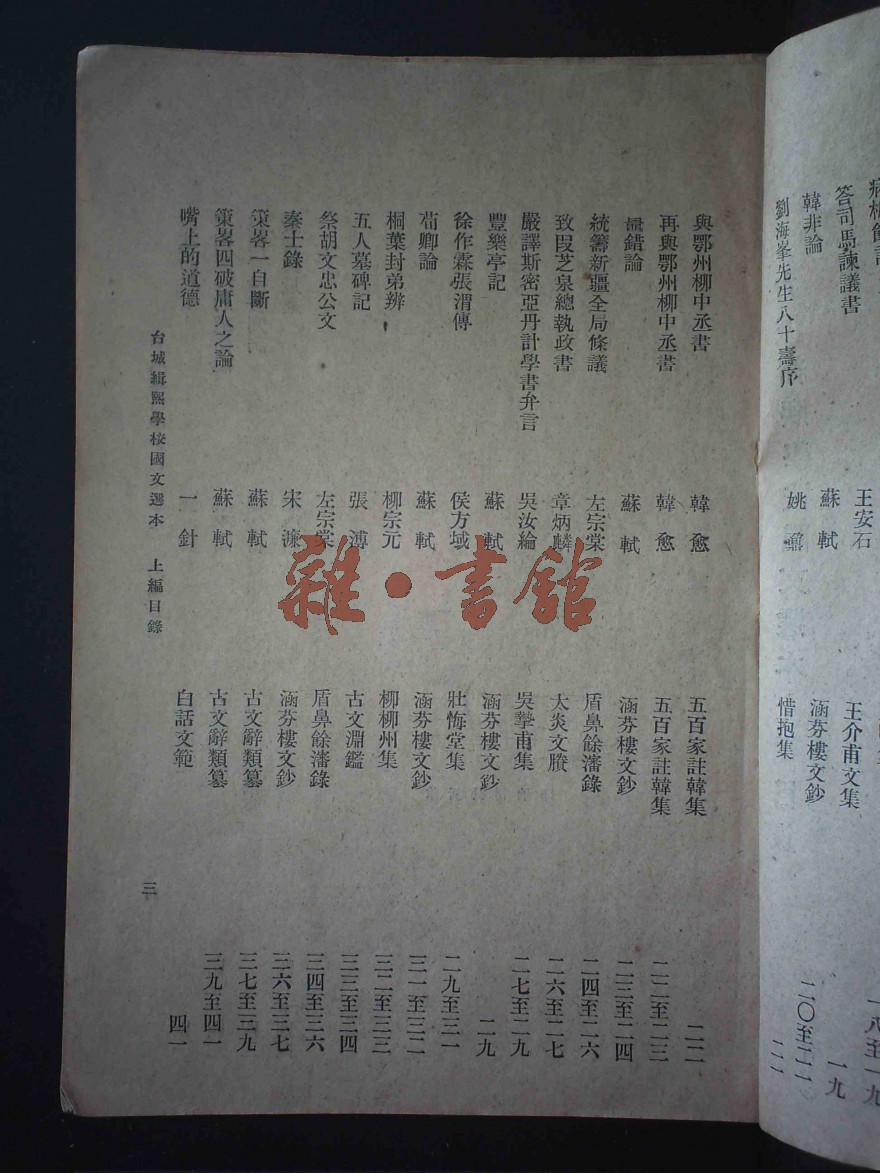 答司馬諫議書 王安石 王介甫文集 一八至一九
韓非論 蘇軾 涵芬樓文鈔 一九
劉海峯先生八十壽序 姚鼐 惜抱集 二〇至二一
與鄂州柳中丞書 韓愈 五百家註韓集 二二
再與鄂州柳中丞書 韓愈 五百家註韓集 二二至二三
鼂錯論 蘇軾 涵芬樓文鈔 二三至二四
統籌新疆全局條議 左宗棠 盾鼻餘瀋錄 二四至二六
致段芝泉總執政書 章炳麟 太炎文賸 二六至二七
嚴譯斯密亞丹計學書弁言 吳汝綸 吳摯甫集 二七至二九
豐樂亭記 蘇軾 涵芬樓文鈔 二九
徐作霖張渭傳 侯方域 壯悔堂集 二九至三一
荀卿論 蘇軾 涵芬樓文鈔 三一至三二
桐葉封弟辨 柳宗元 柳柳州集 三二至三三
五人墓碑記 張溥 古文淵鑑 三三至三四
祭胡文忠公文 左宗棠 盾鼻餘瀋錄 三四至三六
秦士錄 宋濂 涵芬樓文鈔 三六至三七
策畧一自斷 蘇軾 古文辭類纂 三七至三九
策畧四破庸人之論 蘇軾 古文辭類纂 三九至四一
嘴上的道德 一針 白話文範 四一
台城緝熙學校國文選本 上編目錄 三
雜·書館